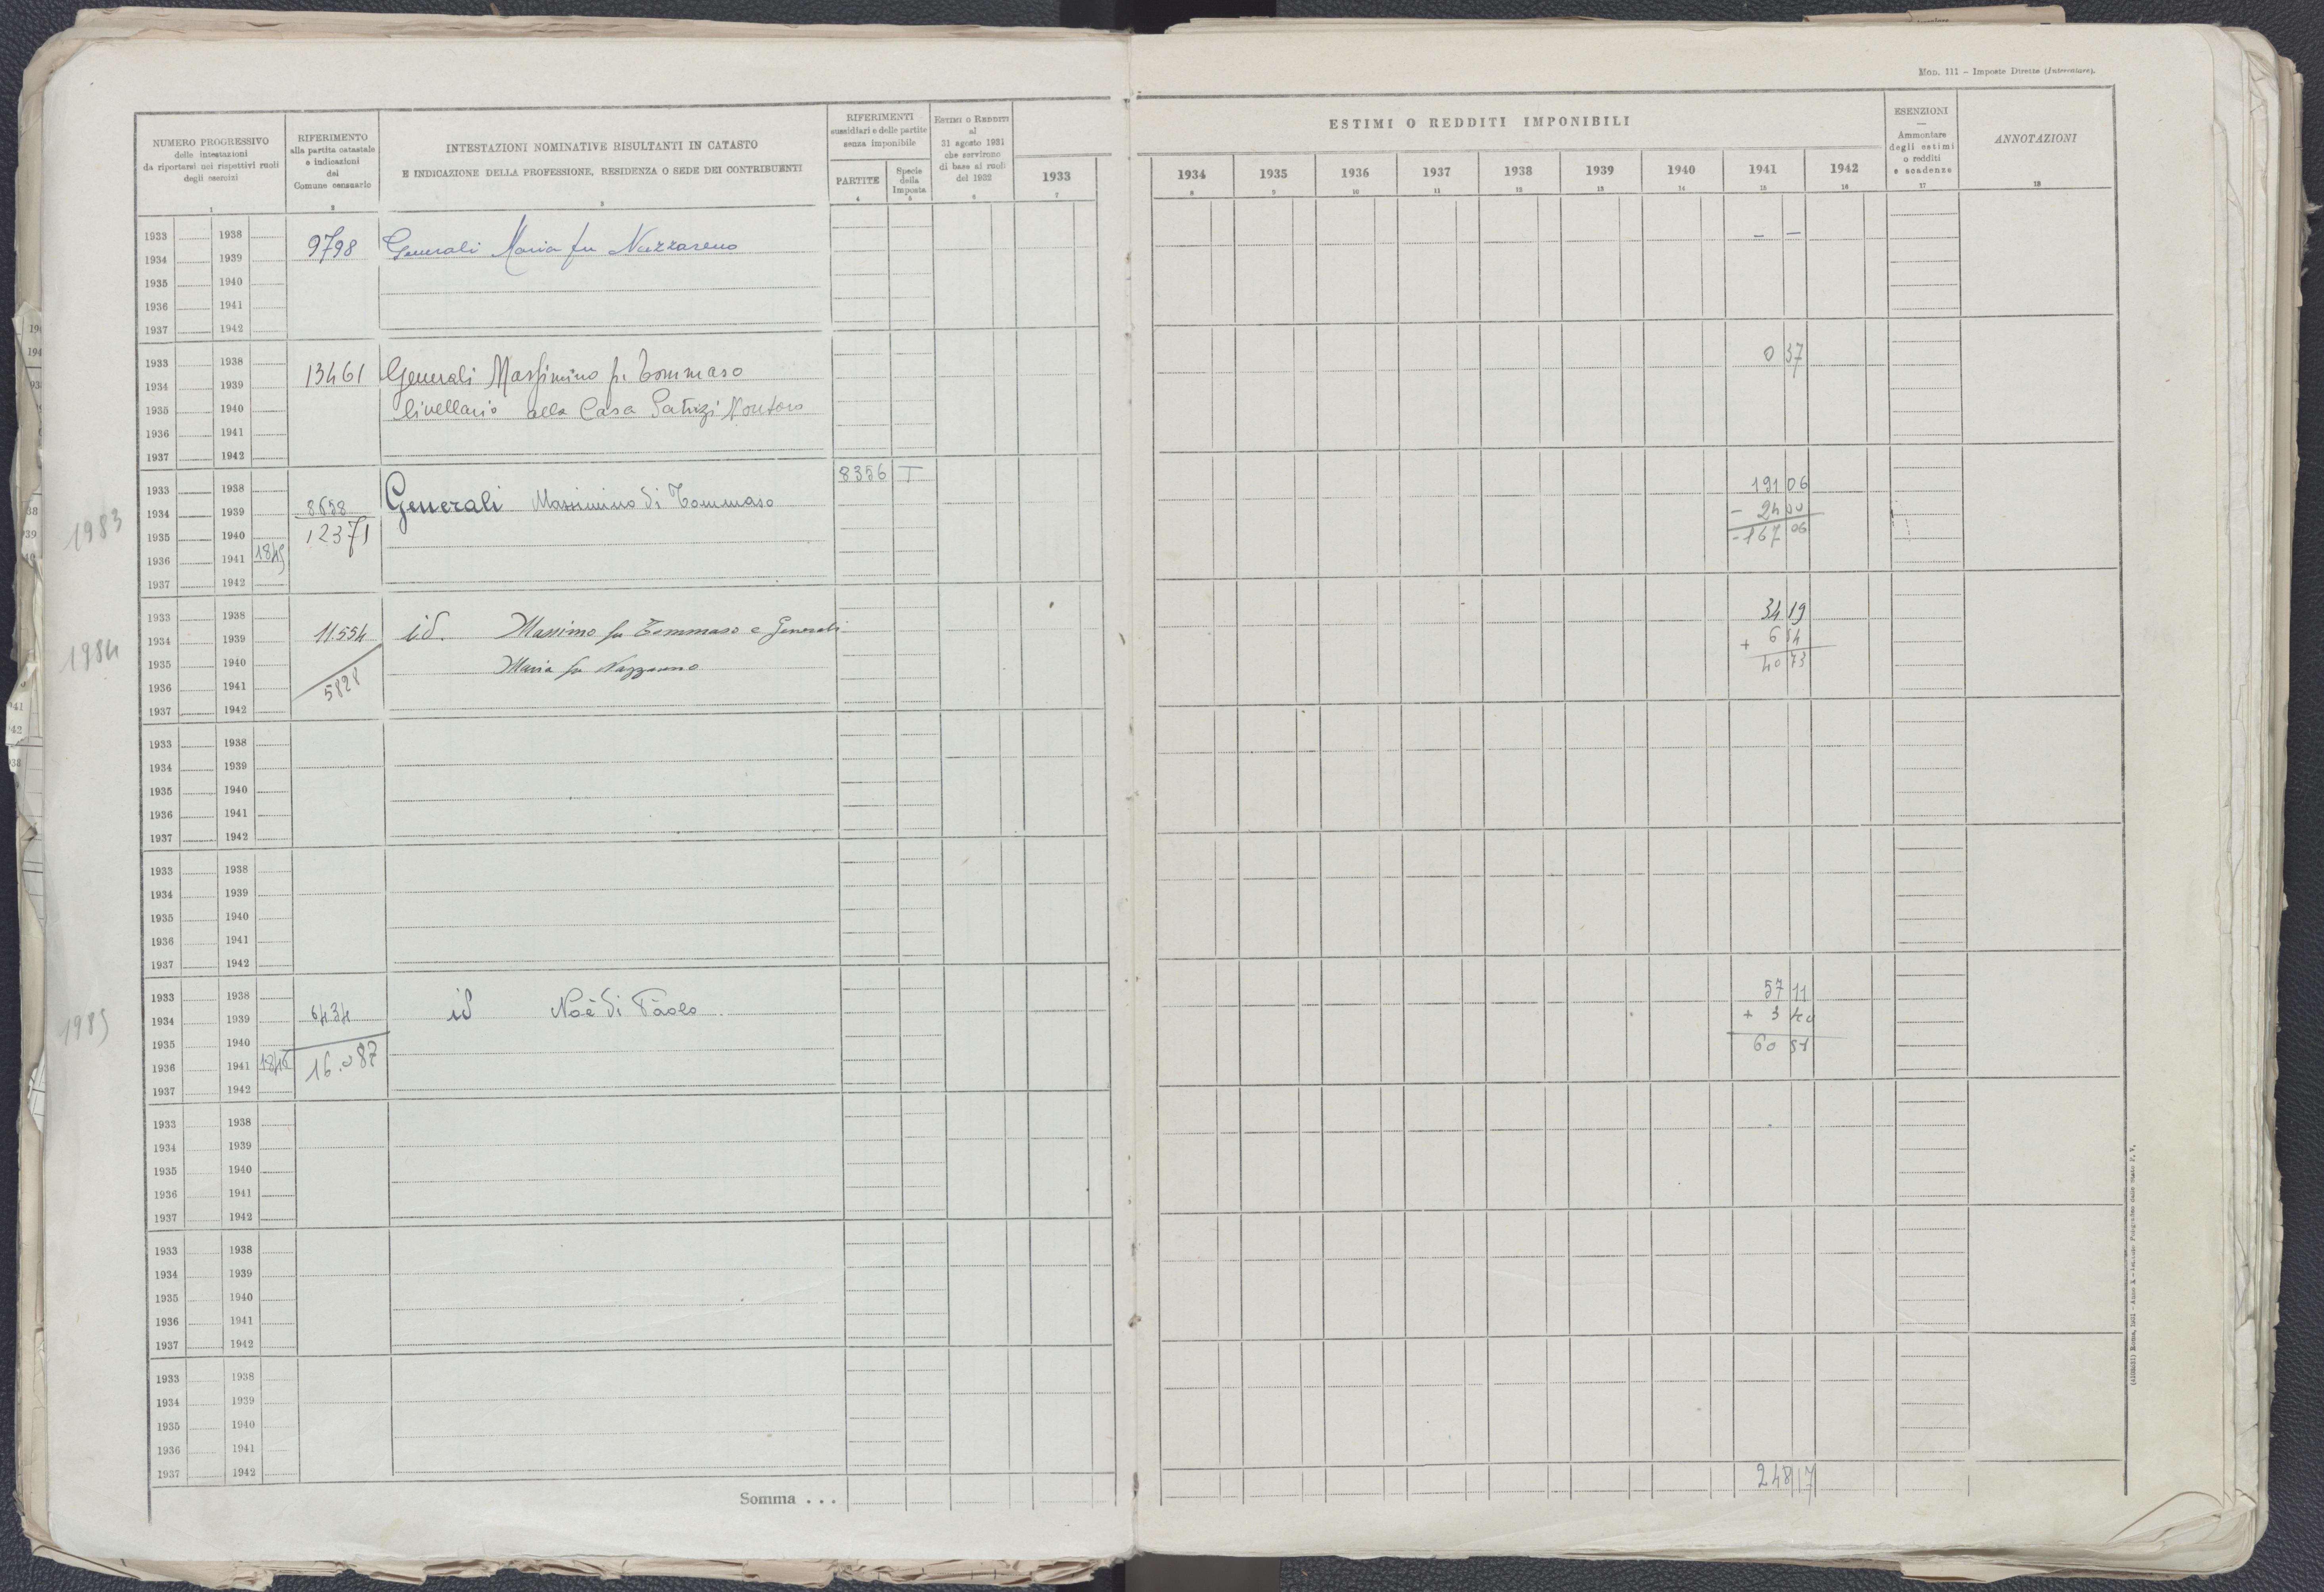 MOD. 111 – Imposte Dirette (Intercalare).
NUMERO PROGRESSIVO
delle intestazioni
da riportarsi nei rispettivi ruoli
degli esercizi
1
RIFERIMENTO
alla partita catastale
o indicazioni
del
Comune censuario
2
INTESTAZIONI NOMINATIVE RISULTANTI IN CATASTO
E INDICAZIONE DELLA PROFESSIONE, RESIDENZA O SEDE DEI CONTRIBUENTI
3
RIFERIMENTI
sussidiari e delle partite
senza imponibile
PARTITE
4
Specie
della
Imposta
5
ESTIMI O REDDITI
al
31 agosto 1931
che servirono
di base ai ruoli
del 1932
6
1933
7
ESTIMI O REDDITI IMPONIBILI
1934 1935 1936 1937 1938 1939 1940 1941 1942
8 9 10 11 12 13 14 15 16
ESENZIONI
—
Ammontare
degli estimi
o redditi
e scadenze
17
ANNOTAZIONI
18
1933 1938
9798 Generali Maria fu Nazzareno – –
1934 1939
1935 1940
1936 1941
1937 1942
1933 1938 0 37
13461 Generali Massimino fu Tommaso
1934 1939
livellario alla Casa Patrizi Montoro
1935 1940
1936 1941
1937 1942
8356 T
1933 1938 191 06
8658 Generali Massimino di Tommaso
1934 1939 – 24 00
1983 12371
1935 1940 – 167 06
1936 1941 1845
1937 1942
1933 1938 34 19
11554 id. Massimo fu Tommaso e Generali
1934 1939 + 6 54
1984 Maria fu Nazzareno
1935 1940 40 73
5828
1936 1941
1937 1942
1933 1938
1934 1939
1935 1940
1936 1941
1937 1942
1933 1938
1934 1939
1935 1940
1936 1941
1937 1942
1933 1938 57 11
6434 id Noè di Paolo
1934 1939 + 3 40
1985
1935 1940 60 51
1936 1941 1846 16.087
1937 1942
1933 1938
1934 1939
1935 1940
1936 1941
1937 1942
1933 1938
1934 1939
1935 1940
1936 1941
1937 1942
1933 1938
1934 1939
1935 1940
1936 1941
1937 1942
Somma . . . 248 17